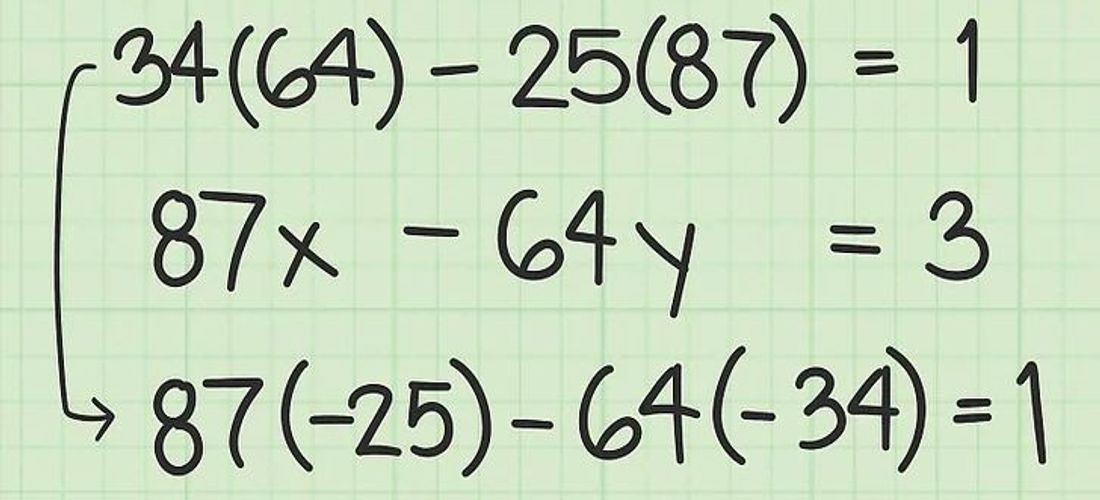 34(64) - 25(87) = 1
87x - 64y = 3
87(-25) - 64(-34) = 1